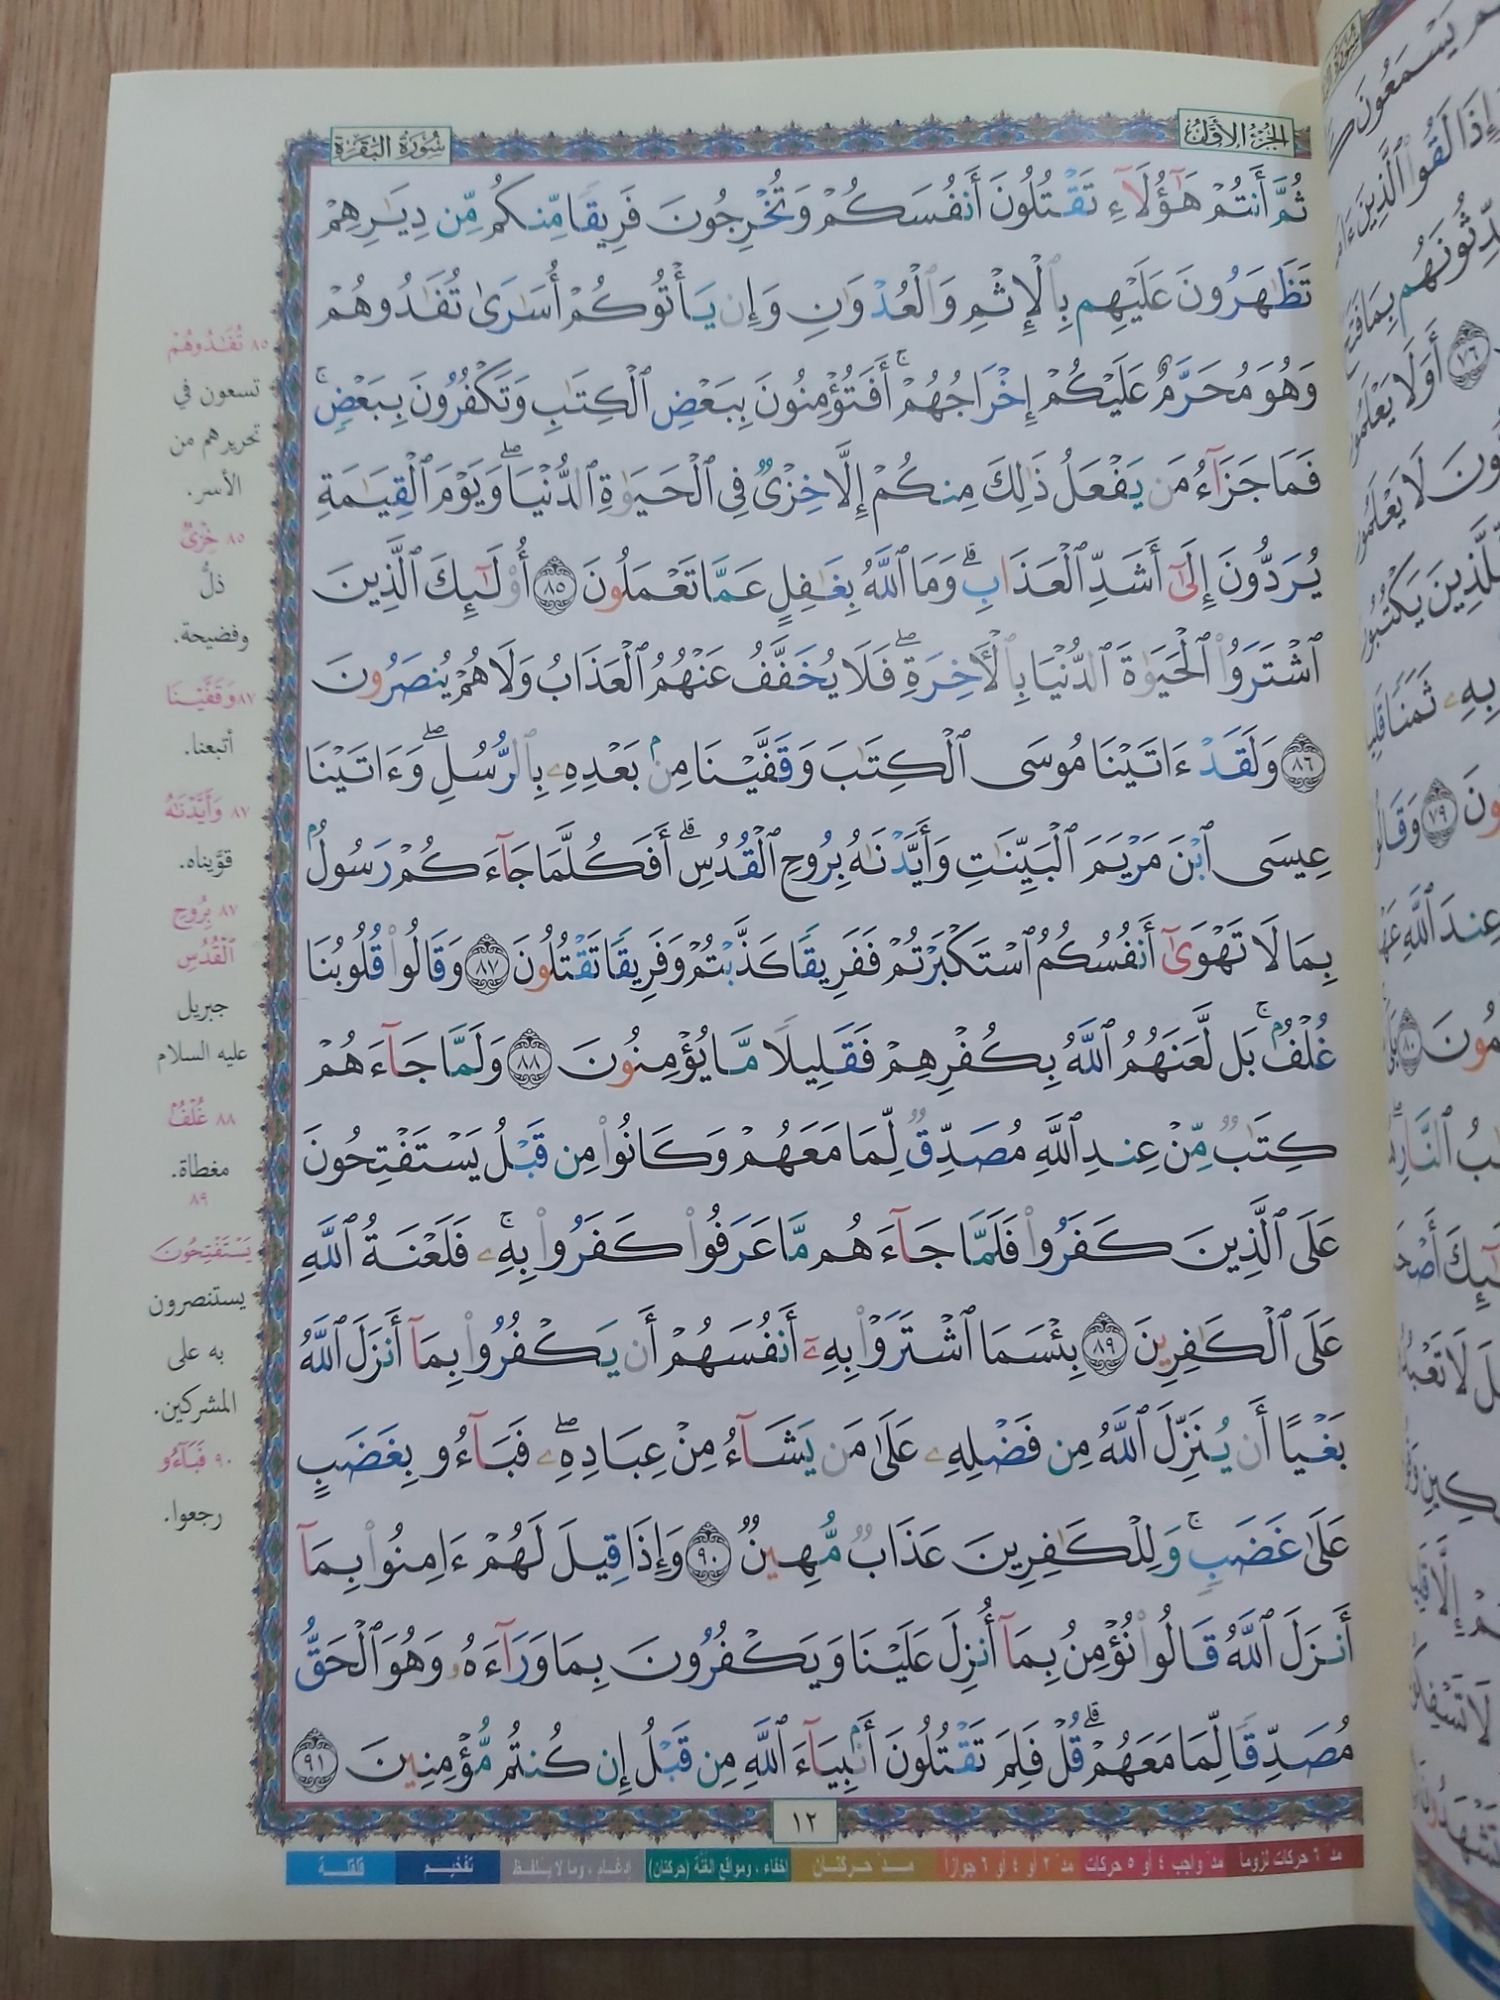 الجزء الأول
سورة البقرة
ثُمَّ أَنتُمْ هَٰٓؤُلَآءِ تَقْتُلُونَ أَنفُسَكُمْ وَتُخْرِجُونَ فَرِيقًا مِّنكُم مِّن دِيَٰرِهِمْ
تَظَٰهَرُونَ عَلَيْهِم بِٱلْإِثْمِ وَٱلْعُدْوَٰنِ وَإِن يَأْتُوكُمْ أُسَٰرَىٰ تُفَٰدُوهُمْ
وَهُوَ مُحَرَّمٌ عَلَيْكُمْ إِخْرَاجُهُمْ ۚ أَفَتُؤْمِنُونَ بِبَعْضِ ٱلْكِتَٰبِ وَتَكْفُرُونَ بِبَعْضٍ ۚ
فَمَا جَزَآءُ مَن يَفْعَلُ ذَٰلِكَ مِنكُمْ إِلَّا خِزْىٌ فِى ٱلْحَيَوٰةِ ٱلدُّنْيَا ۖ وَيَوْمَ ٱلْقِيَٰمَةِ
يُرَدُّونَ إِلَىٰٓ أَشَدِّ ٱلْعَذَابِ ۗ وَمَا ٱللَّهُ بِغَٰفِلٍ عَمَّا تَعْمَلُونَ ٨٥ أُو۟لَٰٓئِكَ ٱلَّذِينَ
ٱشْتَرَوُا۟ ٱلْحَيَوٰةَ ٱلدُّنْيَا بِٱلْءَاخِرَةِ ۖ فَلَا يُخَفَّفُ عَنْهُمُ ٱلْعَذَابُ وَلَا هُمْ يُنصَرُونَ
٨٦ وَلَقَدْ ءَاتَيْنَا مُوسَى ٱلْكِتَٰبَ وَقَفَّيْنَا مِنۢ بَعْدِهِۦ بِٱلرُّسُلِ ۖ وَءَاتَيْنَا
عِيسَى ٱبْنَ مَرْيَمَ ٱلْبَيِّنَٰتِ وَأَيَّدْنَٰهُ بِرُوحِ ٱلْقُدُسِ ۗ أَفَكُلَّمَا جَآءَكُمْ رَسُولٌۢ
بِمَا لَا تَهْوَىٰٓ أَنفُسُكُمُ ٱسْتَكْبَرْتُمْ فَفَرِيقًا كَذَّبْتُمْ وَفَرِيقًا تَقْتُلُونَ ٨٧ وَقَالُوا۟ قُلُوبُنَا
غُلْفٌۢ ۚ بَل لَّعَنَهُمُ ٱللَّهُ بِكُفْرِهِمْ فَقَلِيلًا مَّا يُؤْمِنُونَ ٨٨ وَلَمَّا جَآءَهُمْ
كِتَٰبٌ مِّنْ عِندِ ٱللَّهِ مُصَدِّقٌ لِّمَا مَعَهُمْ وَكَانُوا۟ مِن قَبْلُ يَسْتَفْتِحُونَ
عَلَى ٱلَّذِينَ كَفَرُوا۟ فَلَمَّا جَآءَهُم مَّا عَرَفُوا۟ كَفَرُوا۟ بِهِۦ ۚ فَلَعْنَةُ ٱللَّهِ
عَلَى ٱلْكَٰفِرِينَ ٨٩ بِئْسَمَا ٱشْتَرَوْا۟ بِهِۦٓ أَنفُسَهُمْ أَن يَكْفُرُوا۟ بِمَآ أَنزَلَ ٱللَّهُ
بَغْيًا أَن يُنَزِّلَ ٱللَّهُ مِن فَضْلِهِۦ عَلَىٰ مَن يَشَآءُ مِنْ عِبَادِهِۦ ۖ فَبَآءُو بِغَضَبٍ
عَلَىٰ غَضَبٍ ۚ وَلِلْكَٰفِرِينَ عَذَابٌ مُّهِينٌ ٩٠ وَإِذَا قِيلَ لَهُمْ ءَامِنُوا۟ بِمَآ
أَنزَلَ ٱللَّهُ قَالُوا۟ نُؤْمِنُ بِمَآ أُنزِلَ عَلَيْنَا وَيَكْفُرُونَ بِمَا وَرَآءَهُۥ وَهُوَ ٱلْحَقُّ
مُصَدِّقًا لِّمَا مَعَهُمْ ۗ قُلْ فَلِمَ تَقْتُلُونَ أَنۢبِيَآءَ ٱللَّهِ مِن قَبْلُ إِن كُنتُم مُّؤْمِنِينَ ٩١
٨٥ تُفَٰدُوهُمْ
تسعون في
تحريرهم من
الأسر.
٨٥ خِزْىٌ
ذلٌّ
وفضيحة.
٨٧ وَقَفَّيْنَا
أتبعنا.
٨٧ وَأَيَّدْنَٰهُ
قوَّيناه.
٨٧ بِرُوحِ
ٱلْقُدُسِ
جبريل
عليه السلام
٨٨ غُلْفٌ
مغطاة.
٨٩
يَسْتَفْتِحُونَ
يستنصرون
به على
المشركين.
٩٠ فَبَآءُو
رجعوا.
١٢
مدّ ٦ حركات لزوماً
مدّ واجب ٤ أو ٥ حركات
مدّ ٢ أو ٤ أو ٦ جوازاً
مدّ حركتان
إخفاء ، ومواقع الغنّة (حركتان)
إدغام ، وما لا يُلفظ
تفخيم
قلقلة